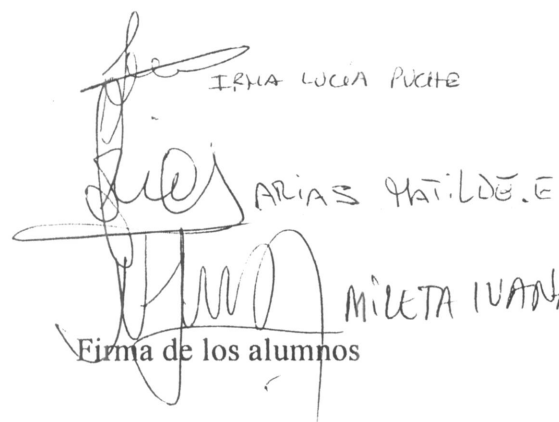 IRMA LUCIA PUCHE
ARIAS MATILDE.E
MILETA IVANA
Firma de los alumnos